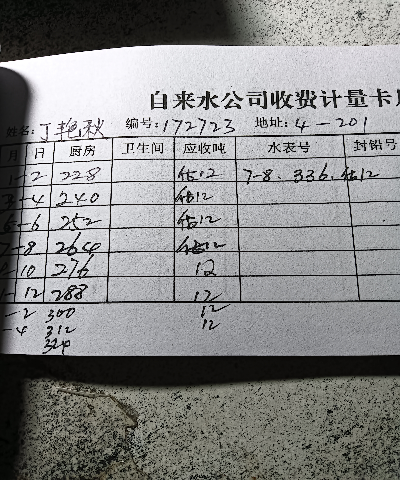 自来水公司收费计量卡
姓名:丁艳秋 编号:172723 地址:4-201
月 日 厨房 卫生间 应收吨 水表号 封铅号
1-2 228 估12 7-8. 336. 估12
3-4 240 估12
5-6 252 估12
7-8 264 估12
-10 276 12
-12 288 12
-2 300 12
-4 312 12
324